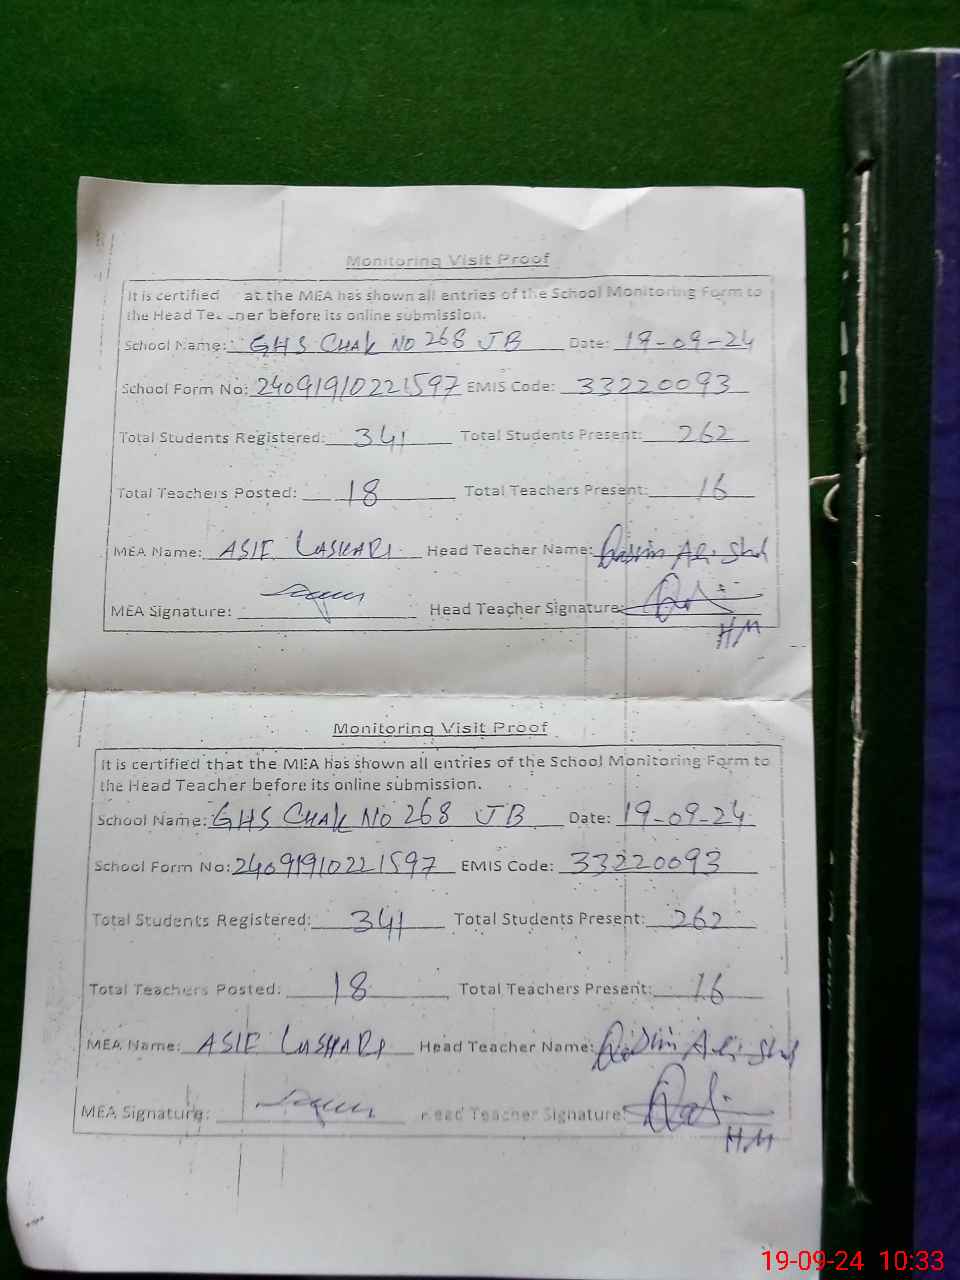 Monitoring Visit Proof
It is certified at the MEA has shown all entries of the School Monitoring Form to
the Head Teacher before its online submission.
School Name: GHS CHAK NO 268 JB Date: 19-09-24
School Form No: 24091910221597 EMIS Code: 33220093
Total Students Registered: 341 Total Students Present: 262
Total Teachers Posted: 18 Total Teachers Present: 16
MEA Name: ASIF LASHARI Head Teacher Name: Ali
MEA Signature: Head Teacher Signature:
HM
Monitoring Visit Proof
It is certified that the MEA has shown all entries of the School Monitoring Form to
the Head Teacher before its online submission.
School Name: GHS CHAK NO 268 JB Date: 19-09-24
School Form No: 24091910221597 EMIS Code: 33220093
Total Students Registered: 341 Total Students Present: 262
Total Teachers Posted: 18 Total Teachers Present: 16
MEA Name: ASIF LASHARI Head Teacher Name: Ali
MEA Signature: Head Teacher Signature:
HM
19-09-24 10:33